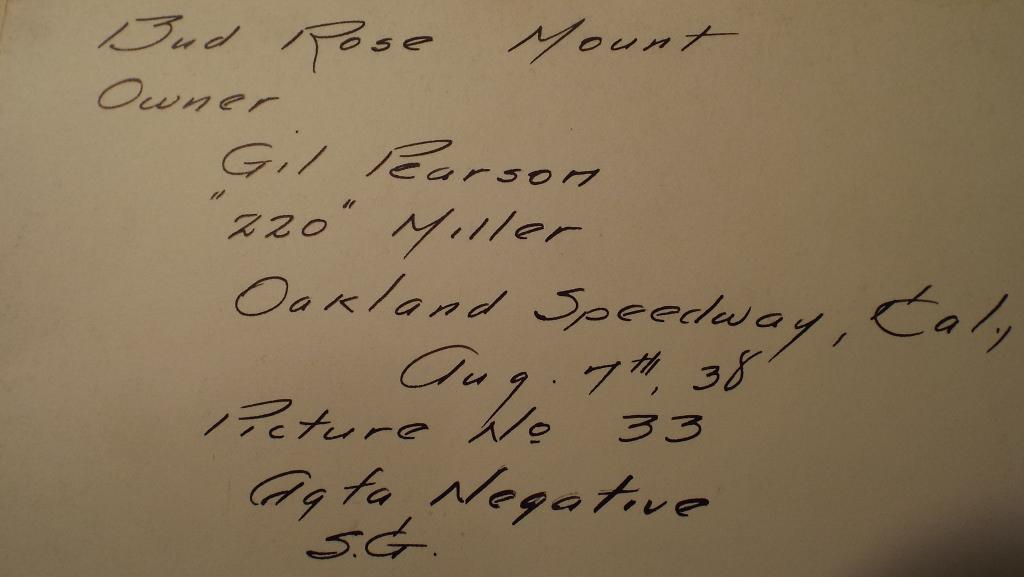 Bud Rose Mount
Owner
Gil Pearson
"220" Miller
Oakland Speedway, Cal.,
Aug. 7TH, 38
Picture No 33
Agfa Negative
S.G.